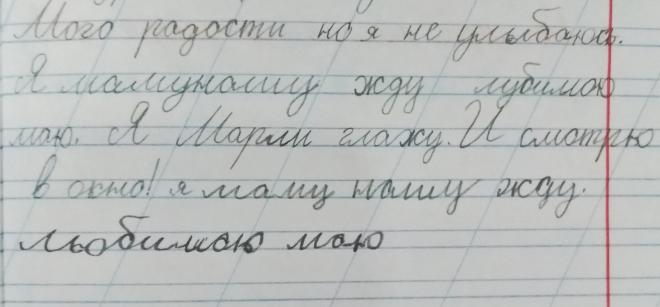 Мого радости но я не улыбаюсь.
Я мамунашу жду лубимою
маю. Я Марли глажу. И смотрю
в окно! я маму нашу жду.
любимою маю